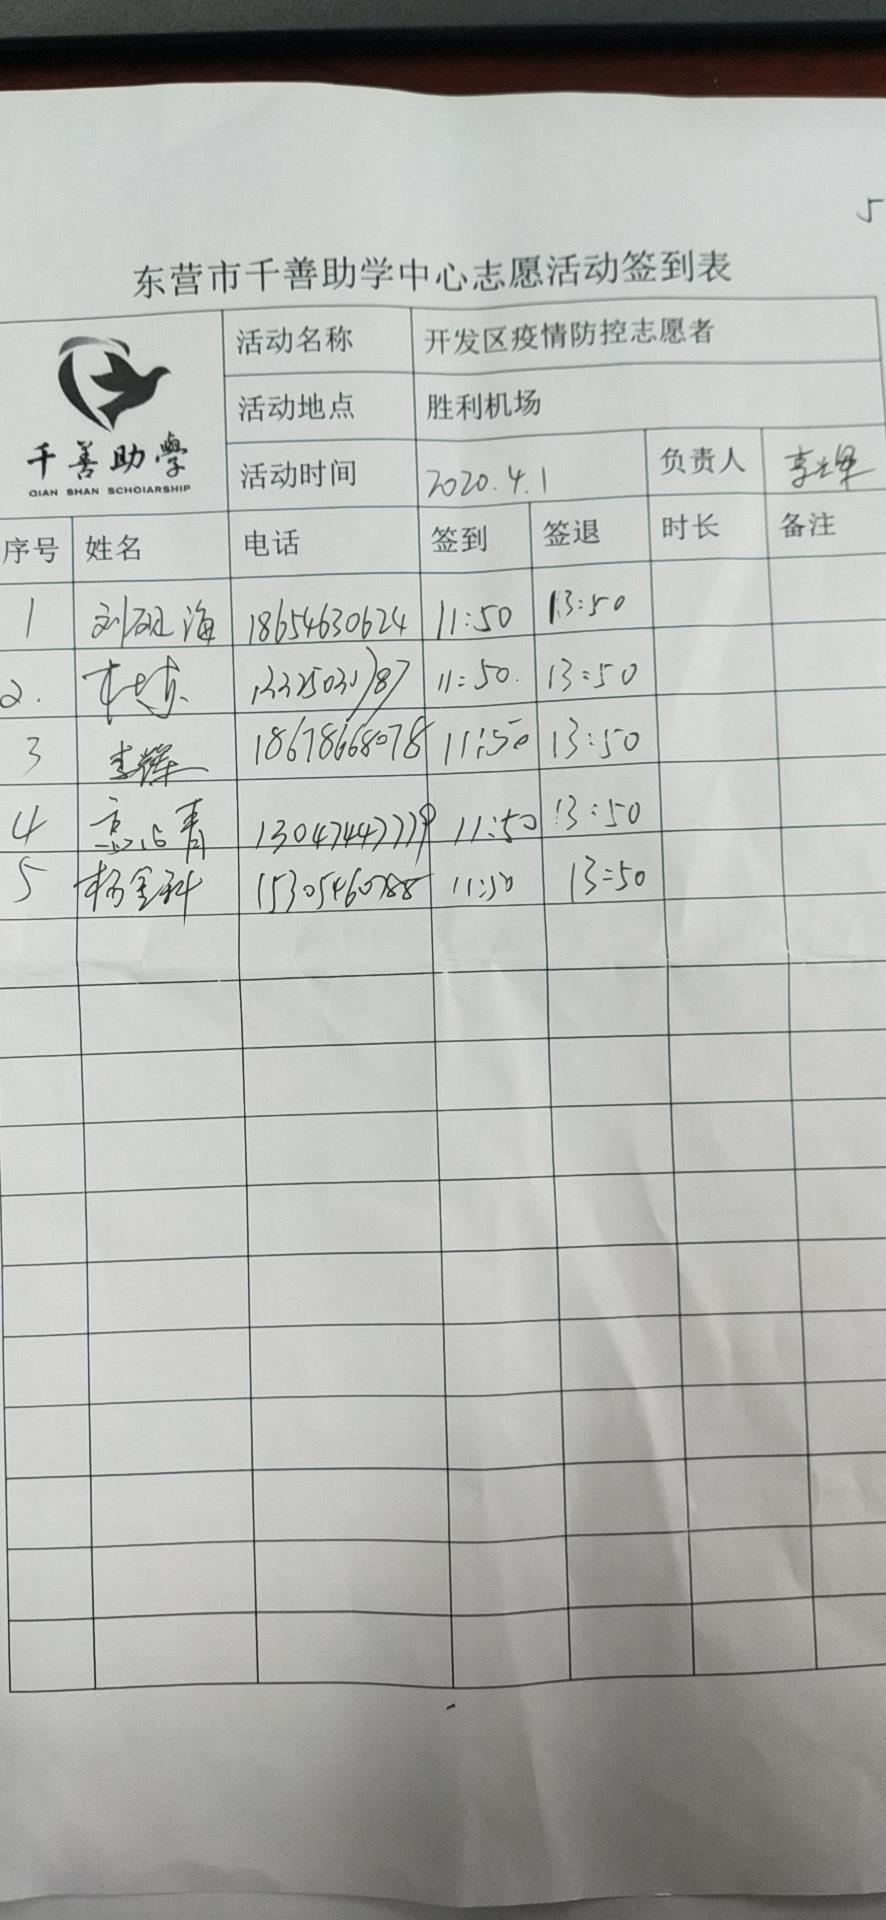 5
东营市千善助学中心志愿活动签到表
千善助學
QIAN SHAN SCHOIARSHIP
活动名称 开发区疫情防控志愿者
活动地点 胜利机场
活动时间 2020.4.1 负责人
序号 姓名 电话 签到 签退 时长 备注
1 刘砚海 18654630624 11:50 13:50
2. 11:50. 13:50
3 李辉 18678668078 11:50 13:50
4 13047447779 11:50 13:50
5 杨金科 15305460788 11:50 13:50